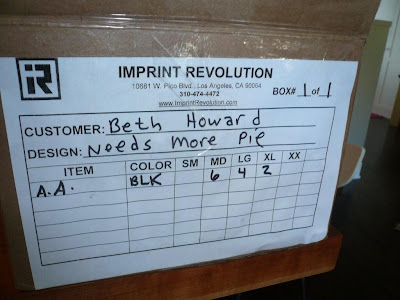 IR
IMPRINT REVOLUTION
10681 W. Pico Blvd., Los Angeles, CA 90064
310-474-4472
www.ImprintRevolution.com
BOX# 1 of 1
CUSTOMER: Beth Howard
DESIGN: Needs More Pie
ITEM COLOR SM MD LG XL XX
A.A. BLK 6 4 2